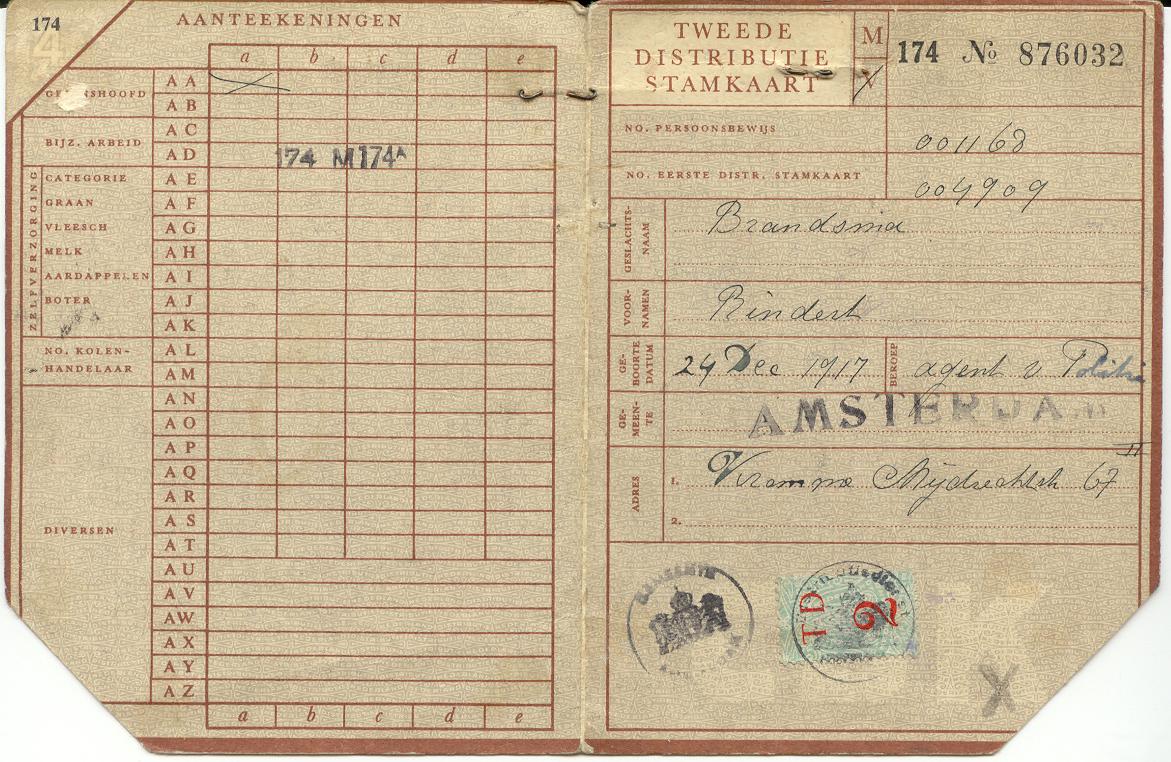 174
AANTEEKENINGEN
a b c d e
AA
AB
BIJZ. ARBEID
AC
AD
174 M174A
ZELFVERZORGING
CATEGORIE AE
GRAAN AF
VLEESCH AG
MELK AH
AARDAPPELEN AI
BOTER AJ
AK
NO. KOLEN-
HANDELAAR
AL
AM
AN
AO
AP
AQ
AR
AS
DIVERSEN
AT
AU
AV
AW
AX
AY
AZ
a b c d e
TWEEDE
DISTRIBUTIE
STAMKAART
M
V
174 No 876032
NO. PERSOONSBEWIJS 001168
NO. EERSTE DISTR. STAMKAART 004909
GESLACHTS-
NAAM
Brandsma
VOOR-
NAMEN
Rindert
GE-
BOORTE
DATUM
24 Dec 1917
BEROEP
agent v Politie
GE-
MEEN-
TE
AMSTERDAM
ADRES
1. Mijdrechtstr 67 II
2.
TD 2
X